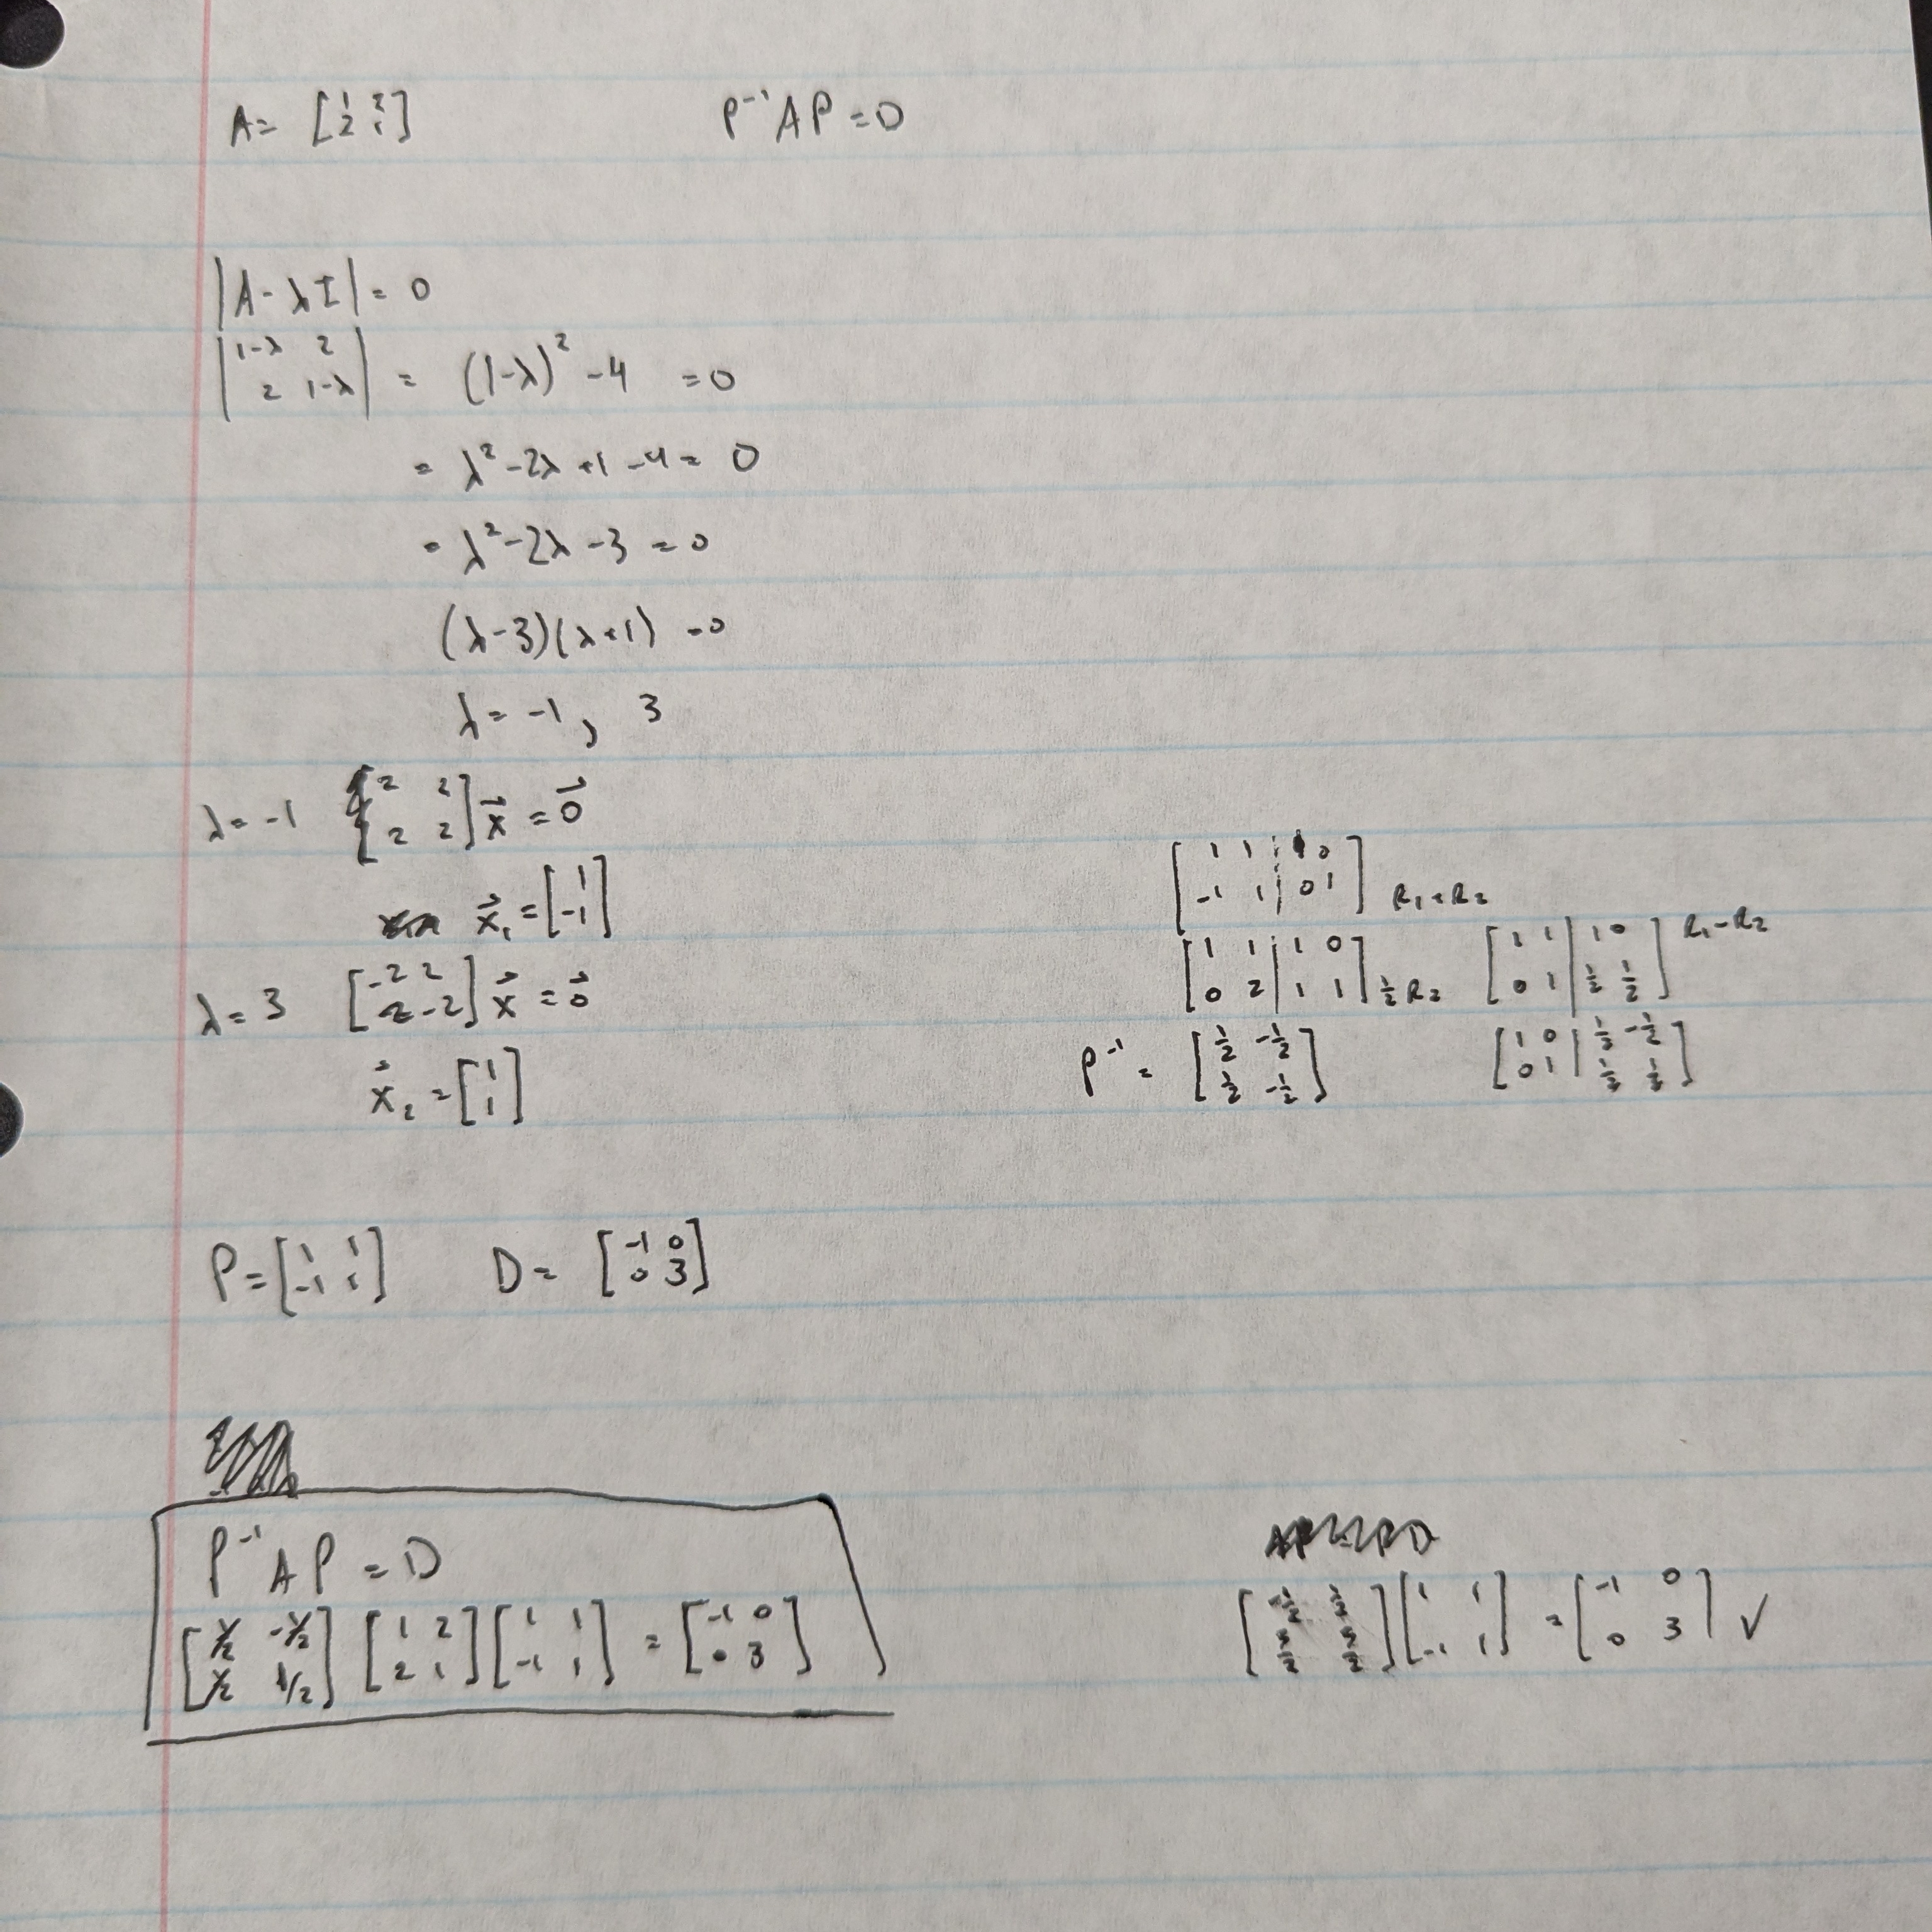 A = [1 2; 2 1]    P⁻¹AP = D
|A - λI| = 0
|1-λ 2; 2 1-λ| = (1-λ)² - 4 = 0
= λ² - 2λ + 1 - 4 = 0
= λ² - 2λ - 3 = 0
(λ-3)(λ+1) = 0
λ = -1, 3
λ = -1 [2 2; 2 2] x⃗ = 0⃗
x⃗₁ = [1; -1]
λ = 3 [-2 2; 2 -2] x⃗ = 0⃗
x⃗₂ = [1; 1]
[1 1 | 1 0; -1 1 | 0 1] R₁+R₂
[1 1 | 1 0; 0 2 | 1 1] ½R₂ [1 1 | 1 0; 0 1 | ½ ½] R₁-R₂
P⁻¹ = [½ -½; ½ -½] [1 0 | ½ -½; 0 1 | ½ ½]
P = [1 1; -1 1]    D = [-1 0; 0 3]
P⁻¹AP = D
[1/2 -1/2; 1/2 1/2] [1 2; 2 1] [1 1; -1 1] = [-1 0; 0 3]
[-½ ½; 3/2 3/2] [1 1; -1 1] = [-1 0; 0 3] ✓